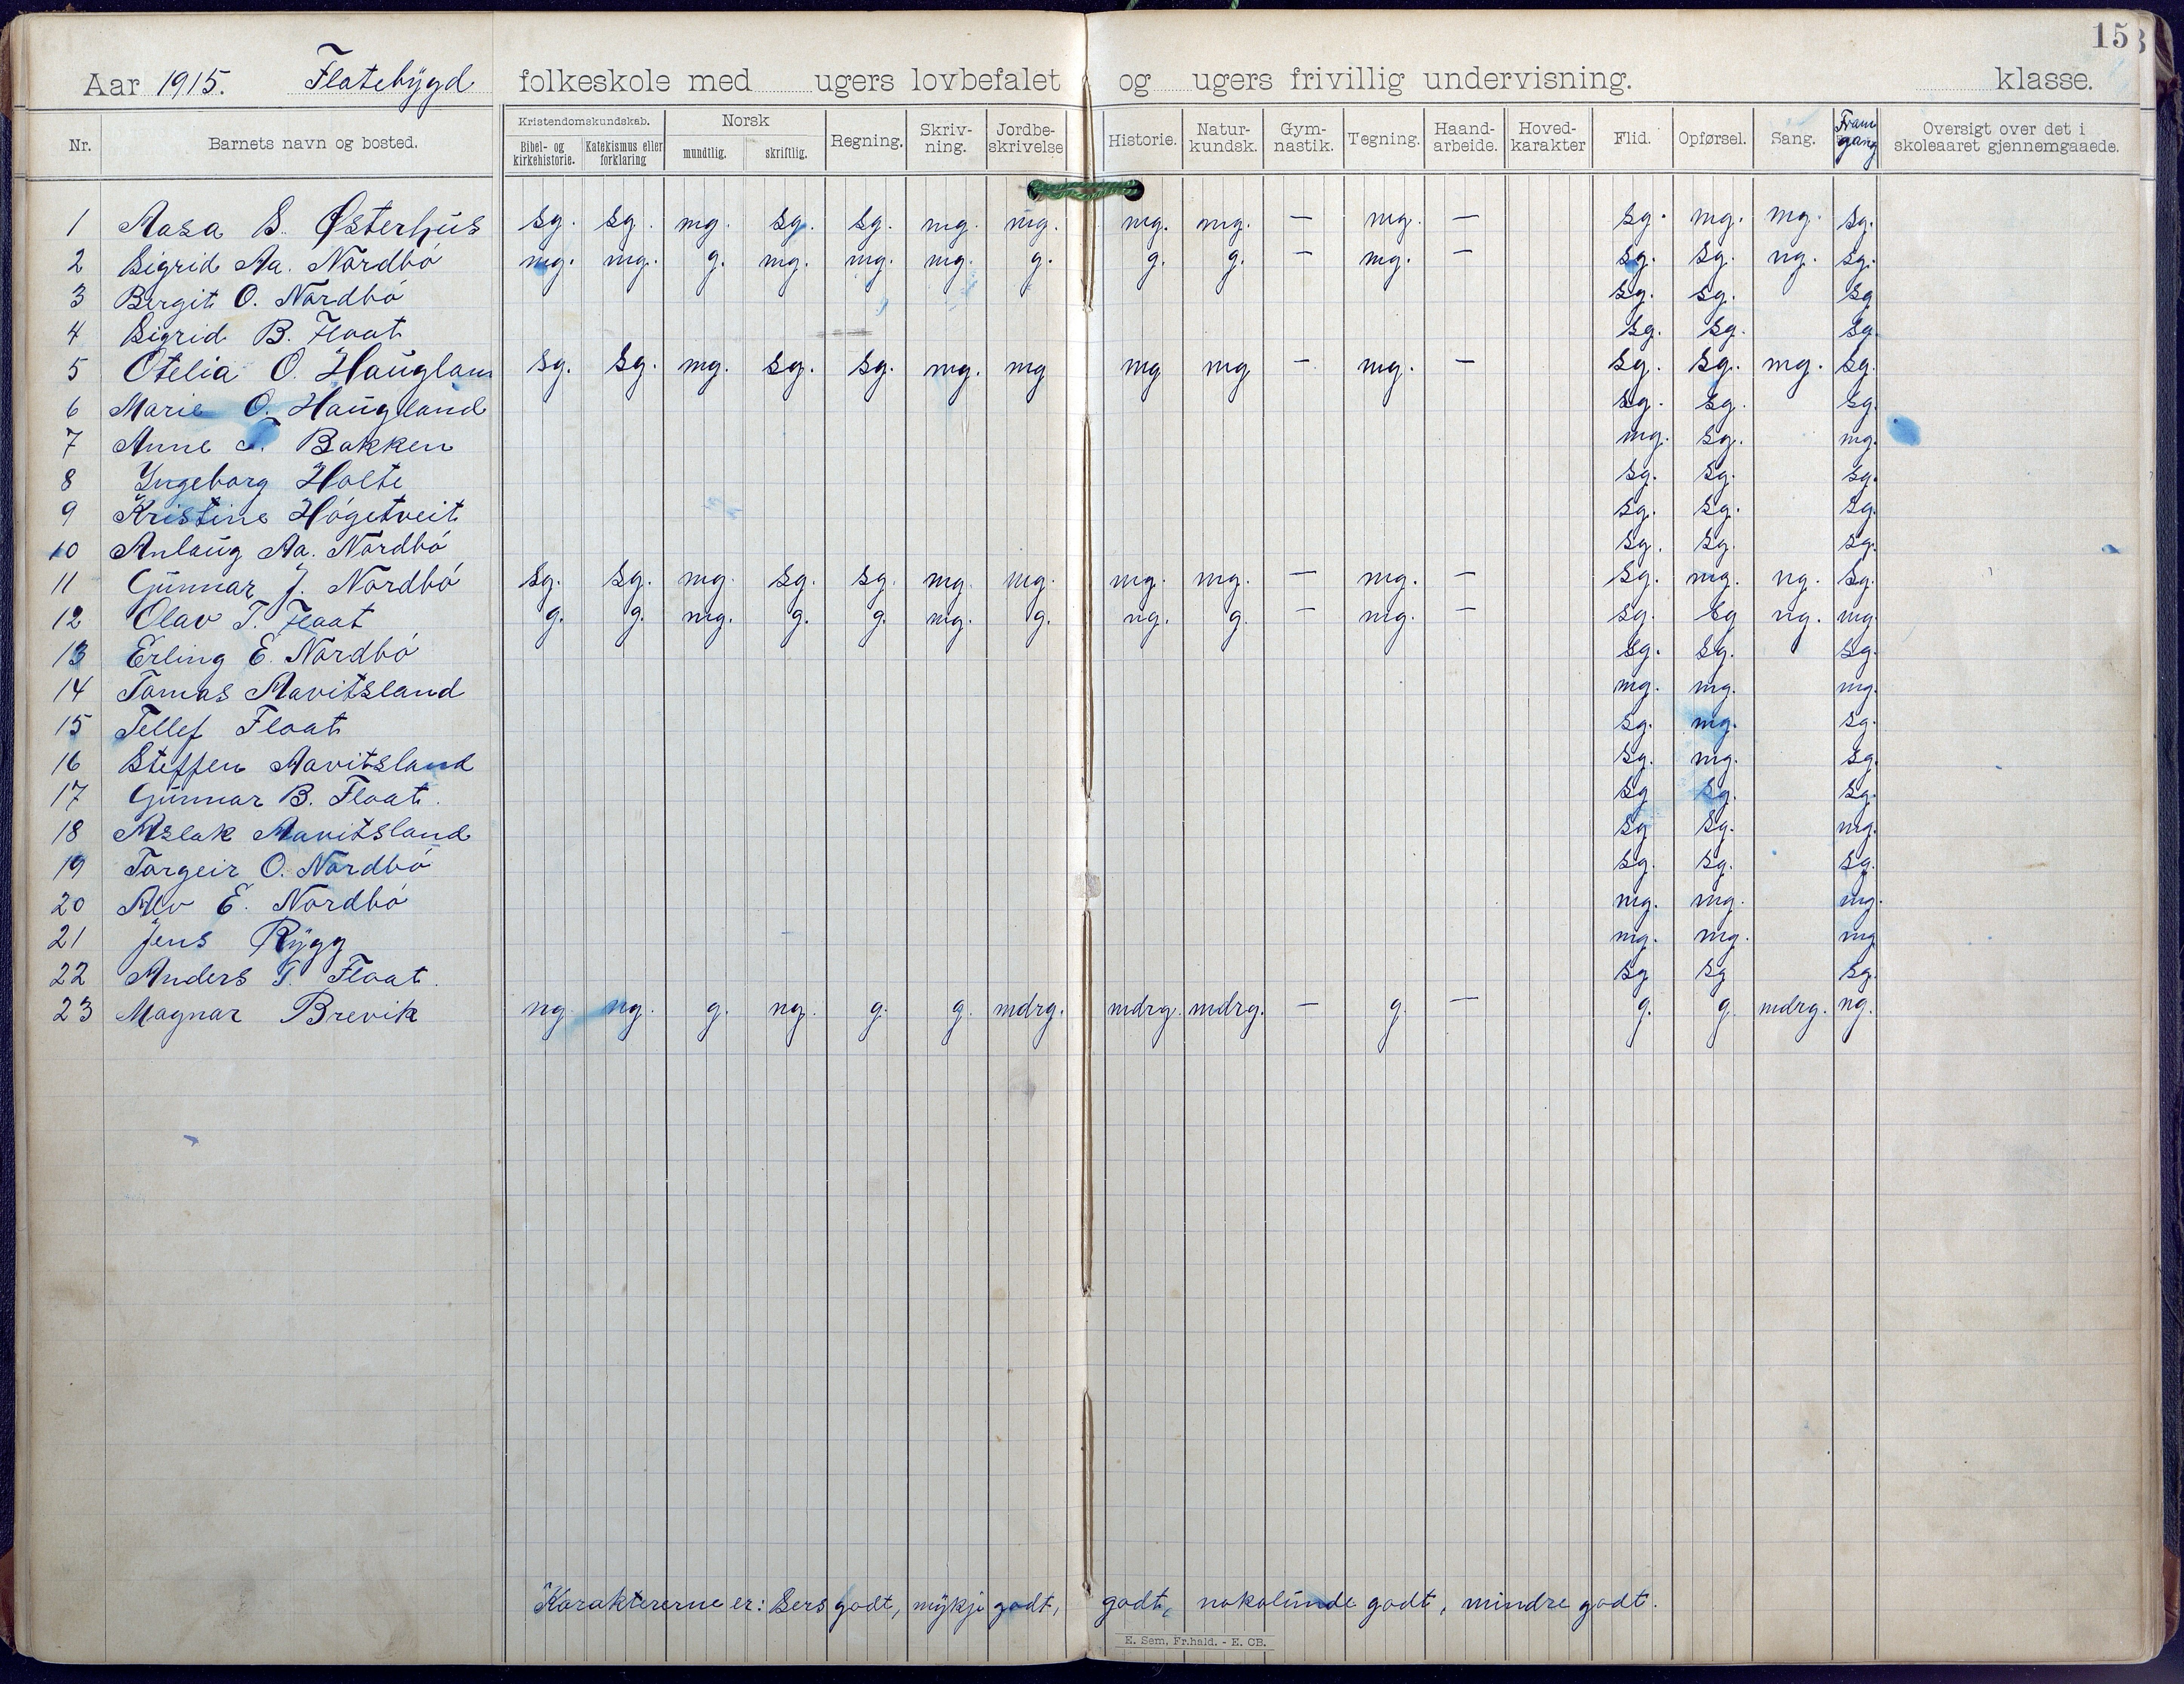 15
Aar 1915. Flatebygd folkeskole med ugers lovbefalet og ugers frivillig undervisning. klasse.
Nr. Barnets navn og bosted. Kristendomskundskab. Bibel- og kirkehistorie. Katekismus eller forklaring Norsk mundtlig. skriftlig. Regning. Skriv-ning. Jordbe-skrivelse Historie. Natur-kundsk. Gym-nastik. Tegning. Haand-arbeide. Hoved-karakter Flid. Opførsel. Sang. Fram gang Oversigt over det i skoleaaret gjennemgaaede.
1 Aasa S. Østerhus sg. sg. mg. sg. sg. mg. mg. mg. mg. — mg. — sg. mg. mg. sg.
2 Sigrid Aa. Nordbö mg. mg. g. mg. mg. mg. g. g. g. — mg. — sg. sg. ng. sg.
3 Bergit O. Nordbö sg. sg. sg
4 Sigrid B. Float sg. sg. sg.
5 Otelia O. Haugland sg. sg. mg. sg. sg. mg. mg mg mg — mg. — sg. sg. mg. sg.
6 Marie O. Haugland sg. sg. sg.
7 Anne T. Bakken mg. sg. mg.
8 Ingeborg Holte sg. sg. sg.
9 Kristine Högetveit sg. sg. sg.
10 Anlaug Aa. Nordbö sg. sg. sg.
11 Gunnar J. Nordbö sg. sg. mg. sg. sg. mg. mg. mg. mg. — mg. — sg. mg. ng. sg.
12 Olav T. Float g. g. mg. g. g. mg. g. ng. g. — mg. — sg. sg ng. mg.
13 Erling E. Nordbö sg. sg. sg.
14 Tomas Aavitsland mg. mg. mg.
15 Tellef Float sg. mg. sg.
16 Steffen Aavitsland sg. mg. sg.
17 Gunnar B. Float. sg sg. sg.
18 Aslak Aavitsland sg sg. mg.
19 Torgeir O. Nordbö sg. sg. sg.
20 Alv E. Nordbö mg. mg. mg.
21 Jens Rygg mg. mg. mg
22 Anders T. Float. sg sg sg.
23 Magnar Brevik ng. ng. g. ng. g. g. mdrg. mdrg. mdrg. — g. — g. g. mdrg. ng.
Karaktererne er: Sers godt, mykje godt, godt, nokolunde godt, mindre godt.
E. Sem, Fr.hald. - E. CB.